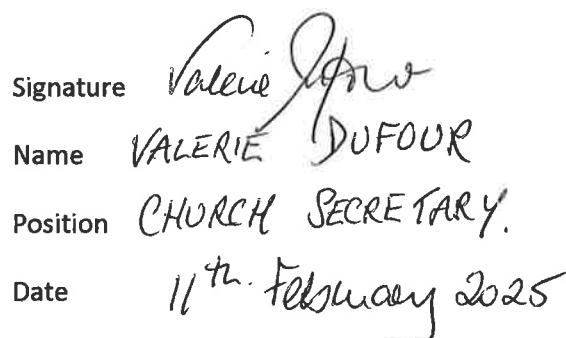 Signature Valerie Dufour
Name VALERIE DUFOUR
Position CHURCH SECRETARY.
Date 11th. February 2025